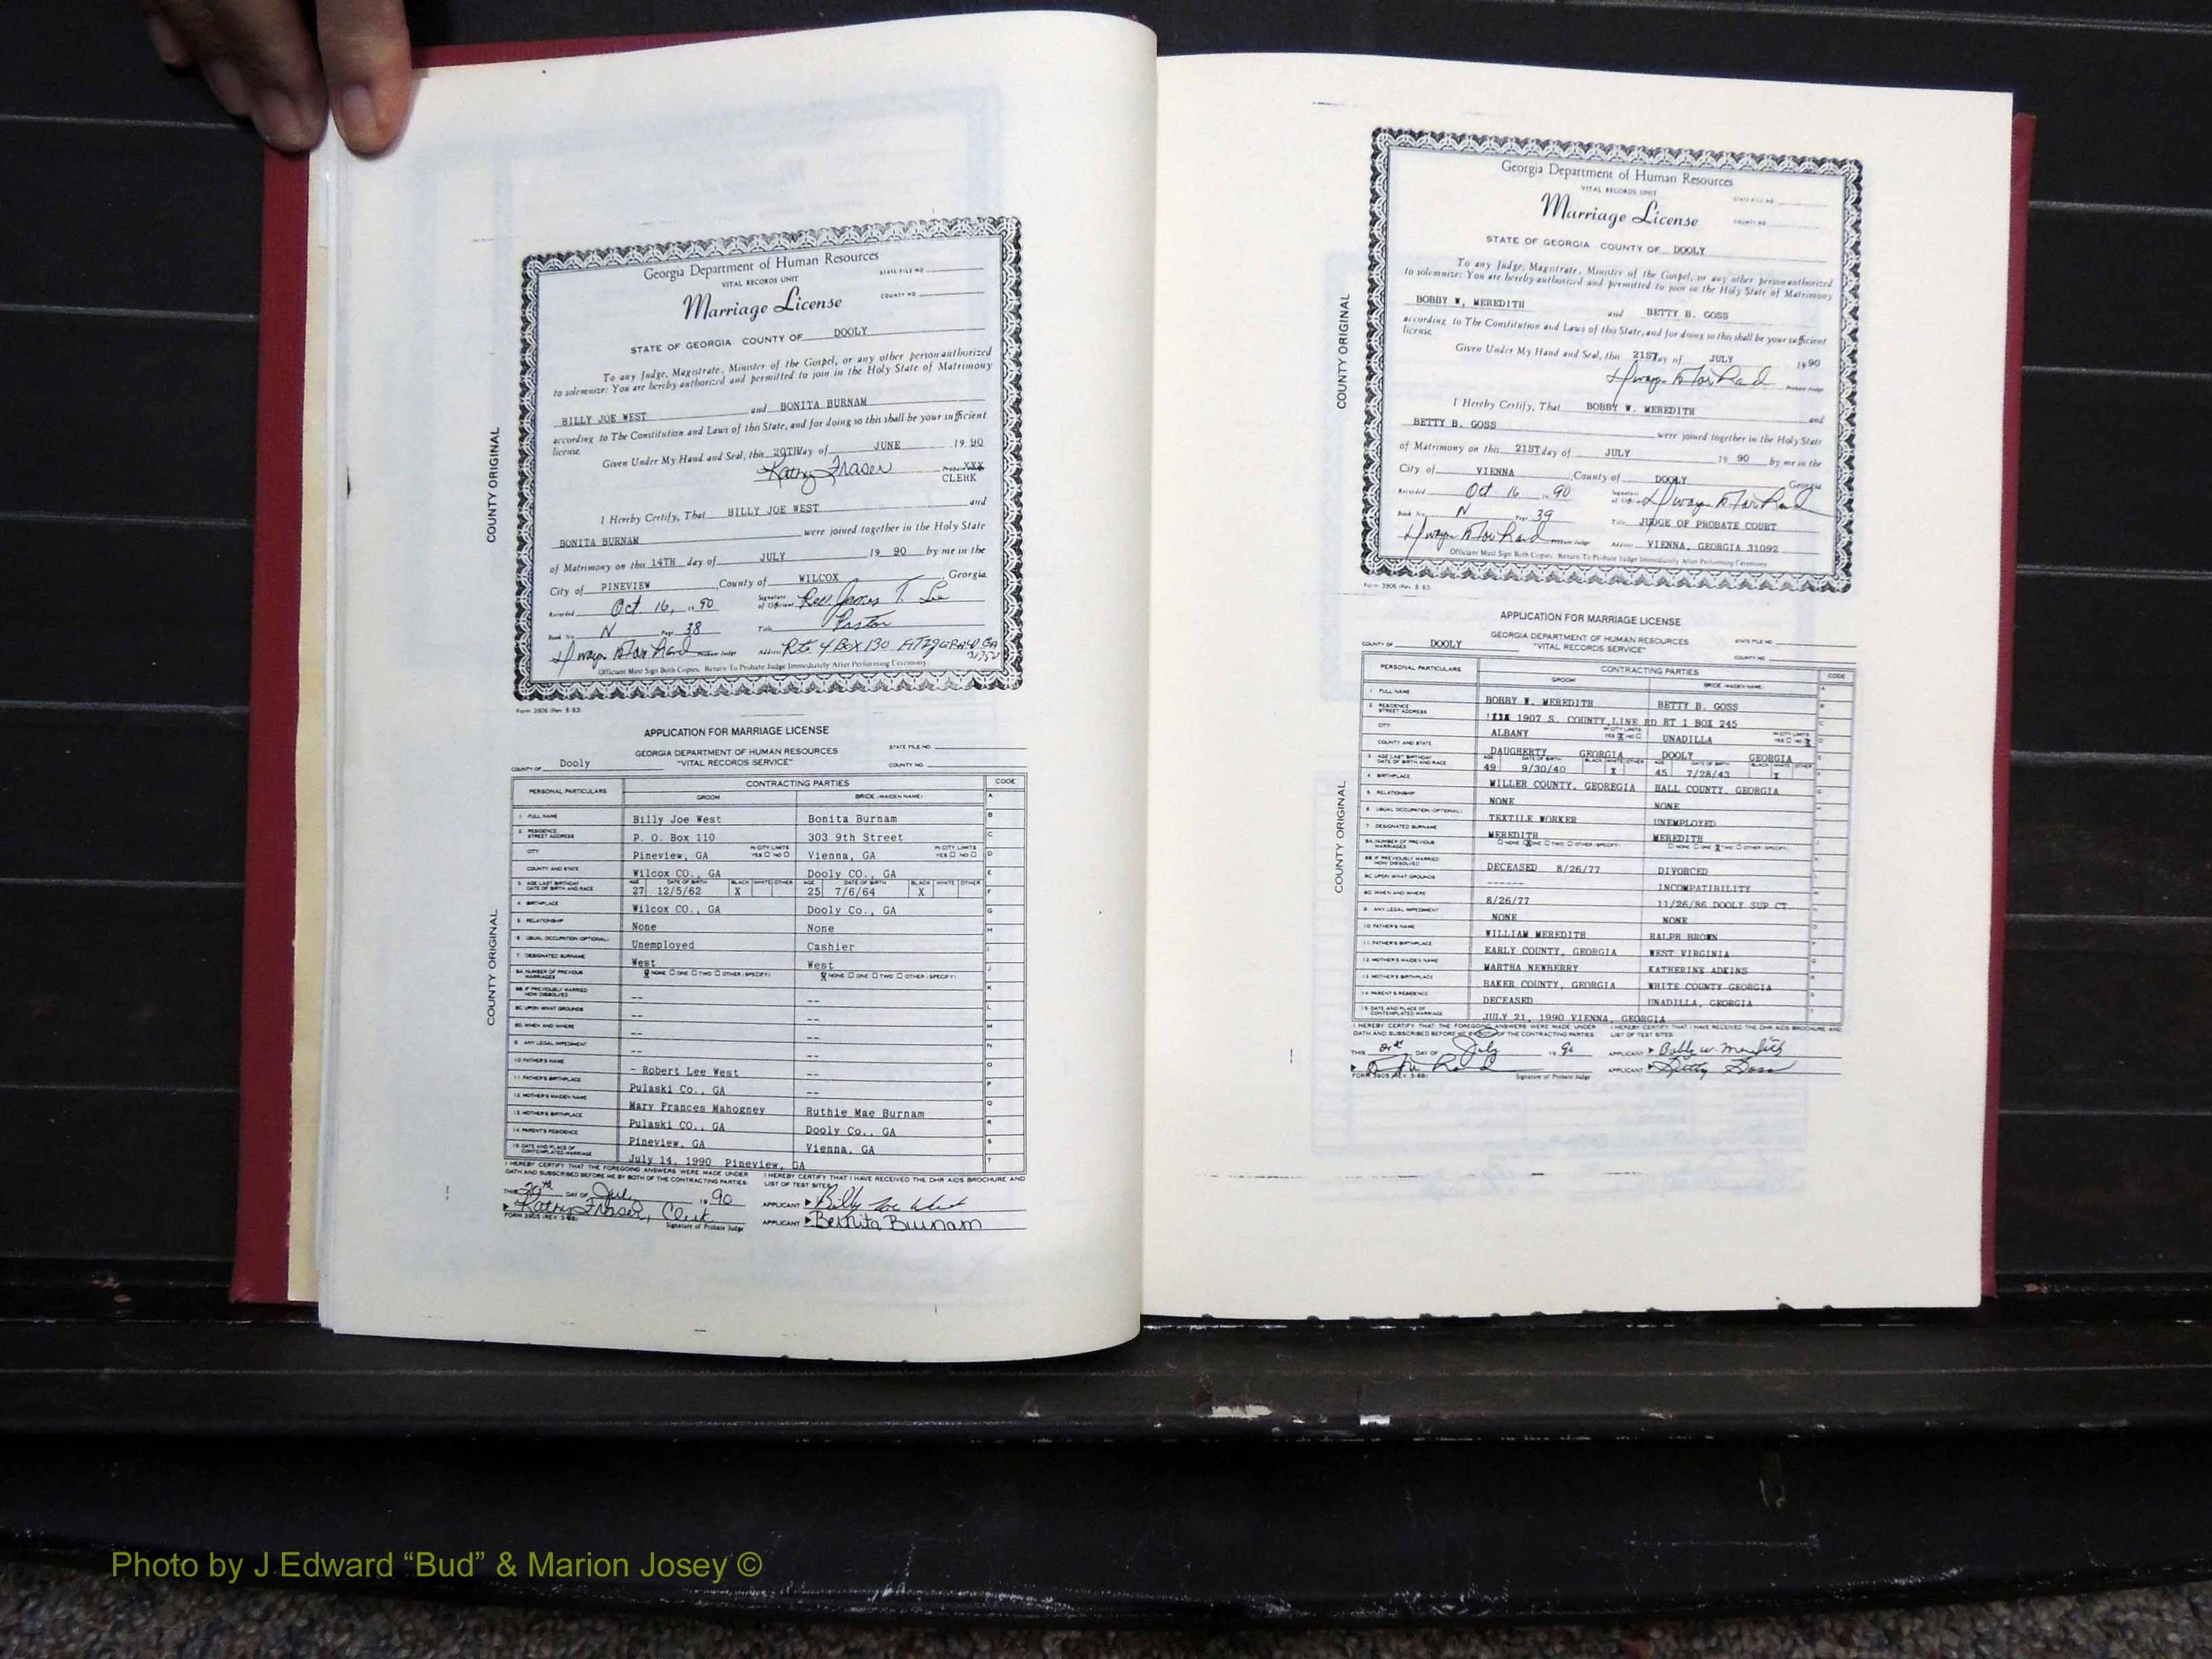 Georgia Department of Human Resources
VITAL RECORDS UNIT
STATE FILE NO.
Marriage License
COUNTY NO.
STATE OF GEORGIA COUNTY OF DOOLY
To any Judge, Magistrate, Minister of the Gospel, or any other person authorized
to solemnize: You are hereby authorized and permitted to join in the Holy State of Matrimony
BILLY JOE WEST and BONITA BURNAM
according to The Constitution and Laws of this State, and for doing so this shall be your sufficient
license.
Given Under My Hand and Seal, this 20TH day of JUNE 19 90
Kathy Fraser
CLERK
I Hereby Certify, That BILLY JOE WEST and
BONITA BURNAM were joined together in the Holy State
of Matrimony on this 14TH day of JULY 19 90 by me in the
City of PINEVIEW, County of WILCOX, Georgia.
Recorded Oct. 16, 19 90 Signature of Official Rev. James T. Lee
Book No. N Page 38 Title Pastor
Probate Judge Address Rte 4 Box 130
Officiant Must Sign Both Copies. Return To Probate Judge Immediately After Performing Ceremony.
Form 3906 (Rev. 8-83)
COUNTY ORIGINAL
APPLICATION FOR MARRIAGE LICENSE
GEORGIA DEPARTMENT OF HUMAN RESOURCES
"VITAL RECORDS SERVICE"
STATE FILE NO.
COUNTY OF Dooly
COUNTY NO.
PERSONAL PARTICULARS CONTRACTING PARTIES CODE
GROOM BRIDE (MAIDEN NAME)
1. FULL NAME Billy Joe West Bonita Burnam
2. RESIDENCE STREET ADDRESS P. O. Box 110 303 9th Street
CITY Pineview, GA IN CITY LIMITS YES NO Vienna, GA IN CITY LIMITS YES NO
COUNTY AND STATE Wilcox CO., GA Dooly CO., GA
3. AGE LAST BIRTHDAY DATE OF BIRTH AND RACE 27 12/5/62 X 25 7/6/64 X
4. BIRTHPLACE Wilcox CO., GA Dooly Co., GA
5. RELATIONSHIP None None
6. USUAL OCCUPATION (OPTIONAL) Unemployed Cashier
7. DESIGNATED SURNAME West West
8A. NUMBER OF PREVIOUS MARRIAGES NONE ONE TWO OTHER (SPECIFY) NONE ONE TWO OTHER (SPECIFY)
8B. IF PREVIOUSLY MARRIED HOW DISSOLVED -- --
8C. UPON WHAT GROUNDS -- --
8D. WHEN AND WHERE -- --
9. ANY LEGAL IMPEDIMENT -- --
10. FATHER'S NAME - Robert Lee West --
11. FATHER'S BIRTHPLACE Pulaski Co., GA --
12. MOTHER'S MAIDEN NAME Mary Frances Mahogney Ruthie Mae Burnam
13. MOTHER'S BIRTHPLACE Pulaski CO., GA Dooly Co., GA
14. PARENT'S RESIDENCE Pineview, GA Vienna, GA
15. DATE AND PLACE OF CONTEMPLATED MARRIAGE July 14, 1990 Pineview, GA
I HEREBY CERTIFY THAT THE FOREGOING ANSWERS WERE MADE UNDER
OATH AND SUBSCRIBED BEFORE ME BY BOTH OF THE CONTRACTING PARTIES.
I HEREBY CERTIFY THAT I HAVE RECEIVED THE DHR AIDS BROCHURE AND
LIST OF TEST SITES.
THIS 20th DAY OF 19 90 APPLICANT Billy Joe West
Kathy Fraser, Clerk APPLICANT Bonita Burnam
FORM 3905 (REV. 3-88) Signature of Probate Judge
COUNTY ORIGINAL
Georgia Department of Human Resources
VITAL RECORDS UNIT
STATE FILE NO.
Marriage License
COUNTY NO.
STATE OF GEORGIA COUNTY OF DOOLY
To any Judge, Magistrate, Minister of the Gospel, or any other person authorized
to solemnize: You are hereby authorized and permitted to join in the Holy State of Matrimony
BOBBY W. MEREDITH and BETTY B. GOSS
according to The Constitution and Laws of this State, and for doing so this shall be your sufficient
license.
Given Under My Hand and Seal, this 21ST day of JULY 19 90
Probate Judge
I Hereby Certify, That BOBBY W. MEREDITH and
BETTY B. GOSS were joined together in the Holy State
of Matrimony on this 21ST day of JULY 19 90 by me in the
City of VIENNA, County of DOOLY Georgia
Recorded Oct 16 19 90 Signature of Official
Book No. N Page 39 Title JUDGE OF PROBATE COURT
Probate Judge Address VIENNA, GEORGIA 31092
Officiant Must Sign Both Copies. Return To Probate Judge Immediately After Performing Ceremony.
Form 3906 (Rev. 8-83)
COUNTY ORIGINAL
APPLICATION FOR MARRIAGE LICENSE
GEORGIA DEPARTMENT OF HUMAN RESOURCES
"VITAL RECORDS SERVICE"
STATE FILE NO.
COUNTY OF DOOLY
COUNTY NO.
PERSONAL PARTICULARS CONTRACTING PARTIES CODE
GROOM BRIDE (MAIDEN NAME)
1. FULL NAME BOBBY W. MEREDITH BETTY B. GOSS
2. RESIDENCE STREET ADDRESS 1907 S. COUNTY LINE RD RT 1 BOX 245
CITY ALBANY IN CITY LIMITS YES X NO UNADILLA IN CITY LIMITS YES NO X
COUNTY AND STATE DAUGHERTY GEORGIA DOOLY GEORGIA
3. AGE LAST BIRTHDAY DATE OF BIRTH AND RACE 49 9/30/40 X 45 7/28/43 X
4. BIRTHPLACE MILLER COUNTY, GEOREGIA HALL COUNTY, GEORGIA
5. RELATIONSHIP NONE NONE
6. USUAL OCCUPATION (OPTIONAL) TEXTILE WORKER UNEMPLOYED
7. DESIGNATED SURNAME MEREDITH MEREDITH
8A. NUMBER OF PREVIOUS MARRIAGES NONE X ONE TWO OTHER (SPECIFY) NONE ONE X TWO OTHER (SPECIFY)
8B. IF PREVIOUSLY MARRIED HOW DISSOLVED DECEASED 8/26/77 DIVORCED
8C. UPON WHAT GROUNDS ------ INCOMPATIBILITY
8D. WHEN AND WHERE 8/26/77 11/26/86 DOOLY SUP CT.
9. ANY LEGAL IMPEDIMENT NONE NONE
10. FATHER'S NAME WILLIAM MEREDITH RALPH BROWN
11. FATHER'S BIRTHPLACE EARLY COUNTY, GEORGIA WEST VIRGINIA
12. MOTHER'S MAIDEN NAME MARTHA NEWBERRY KATHERINE ADKINS
13. MOTHER'S BIRTHPLACE BAKER COUNTY, GEORGIA WHITE COUNTY GEORGIA
14. PARENT'S RESIDENCE DECEASED UNADILLA, GEORGIA
15. DATE AND PLACE OF CONTEMPLATED MARRIAGE JULY 21, 1990 VIENNA, GEORGIA
I HEREBY CERTIFY THAT THE FOREGOING ANSWERS WERE MADE UNDER
OATH AND SUBSCRIBED BEFORE ME BY BOTH OF THE CONTRACTING PARTIES
I HEREBY CERTIFY THAT I HAVE RECEIVED THE DHR AIDS BROCHURE AND
LIST OF TEST SITES
THIS 21st DAY OF July 19 90 APPLICANT Bobby W. Meredith
APPLICANT Betty Goss
FORM 3905 (REV. 3-88) Signature of Probate Judge
COUNTY ORIGINAL
Photo by J Edward “Bud” & Marion Josey ©